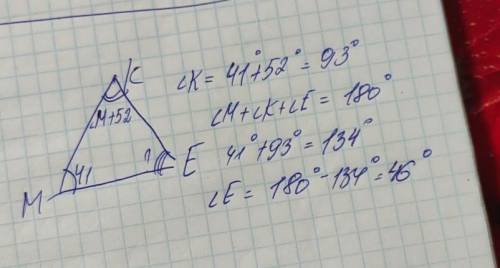 K
∠M+52
41
?
M
E
∠K= 41°+52°=93°
∠M+∠K+∠E = 180°
41°+93°=134°
∠E= 180°-134°=46°